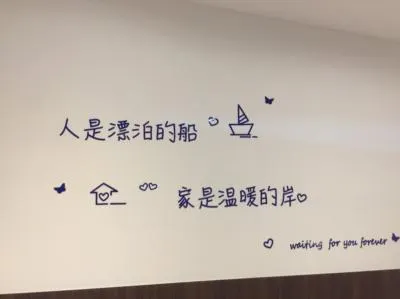 人是漂泊的船
家是温暖的岸
waiting for you forever